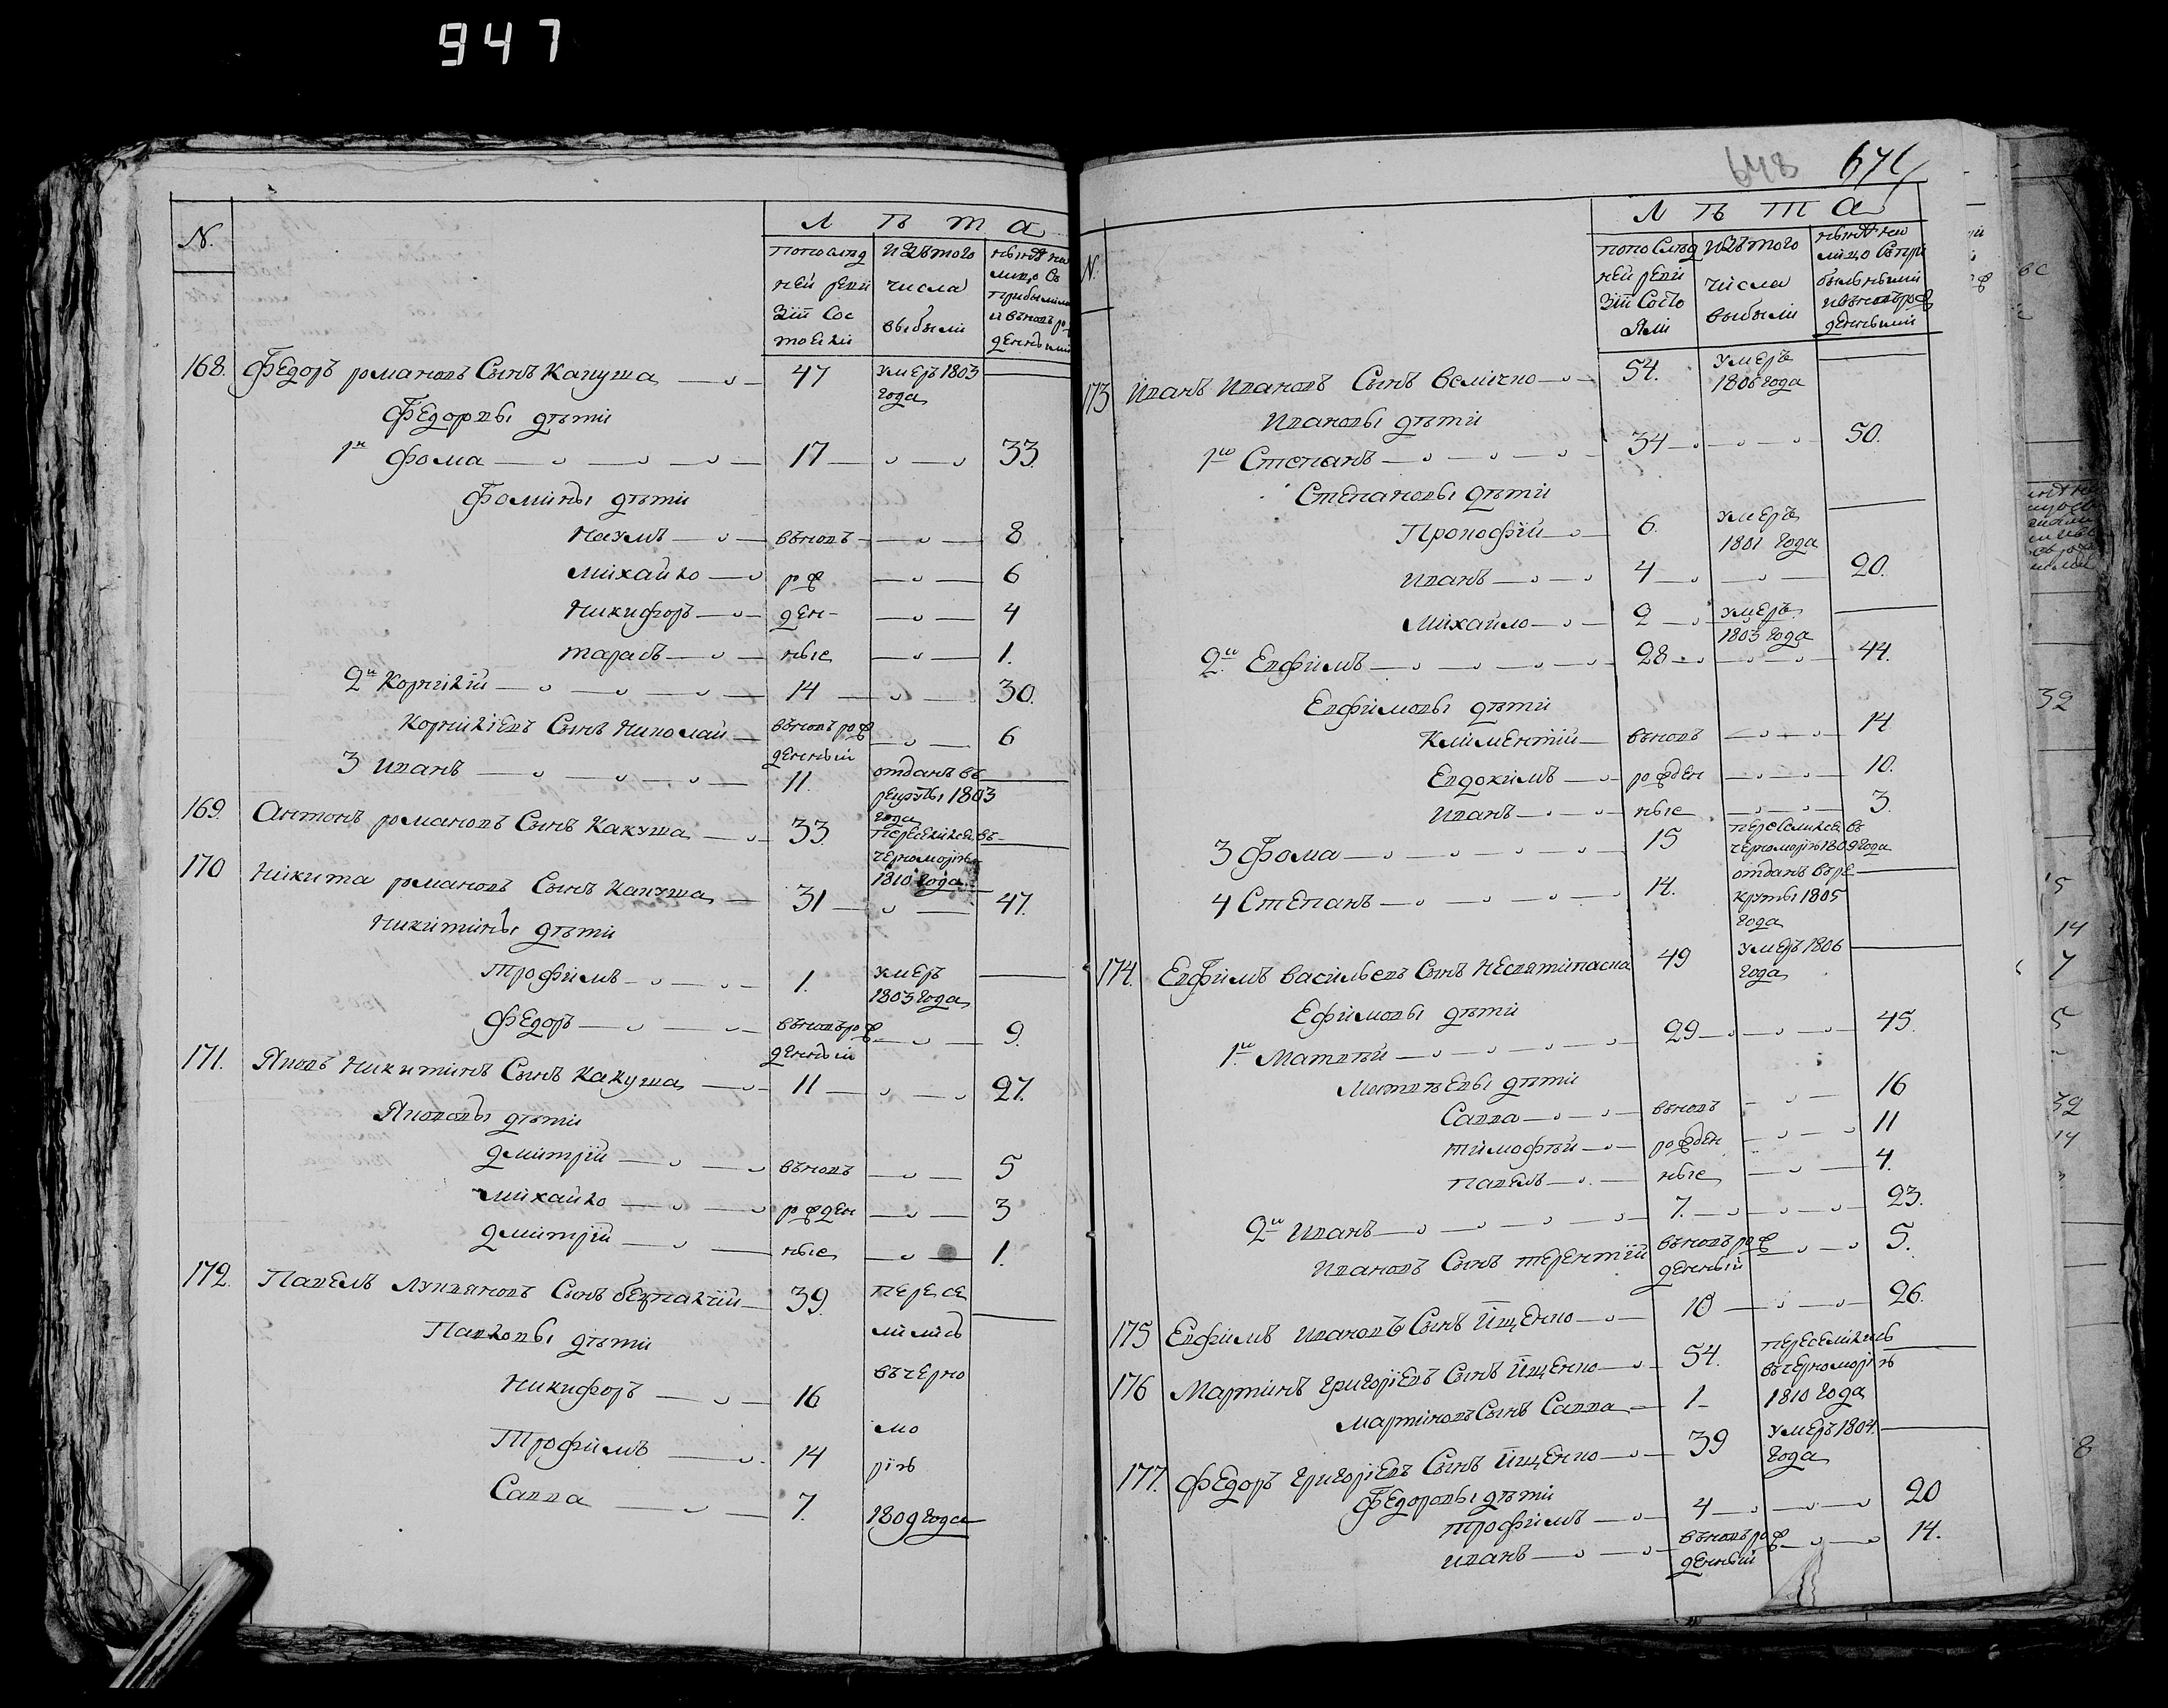 947
N.
Л Ѣ Т А
попослед ней реви зіи сос тояли
изътого числа выбыли
648 671
N.
Л Ѣ Т А
попослед ней реви зіи состо яли
изътого числа выбыли
168. Федоръ романовъ Сынъ Какуша 47 умеръ 1803 года
Федоровы дѣти
1й Фома 17 33.
Фомины дѣти
Наумъ вновь 8
Михайло рож 6
Никифоръ ден 4
тарасъ ные 1.
2й Корнилій 14 30.
Корниліевъ Сынъ Николай вновь рож денный 6
3 Иванъ 11. отданъ въ рекруты 1803 года
169. Антонъ романовъ Сынъ Какуша 33. переселился въ черноморію 1810 года
170 Никита романовъ Сынъ Какуша 31 47.
Никитины дѣти
Трофимъ 1. умеръ 1803 года
Федоръ вновь рож денный 9.
171. Яковъ Никитинъ Сынъ Какуша 11 27.
Яковлевы дѣти
Дмитрій вновь 5
Михайло рожден 3
Дмитрій ные 1.
172. Павелъ Лукьяновъ Сынъ 39. пересе
Павловы дѣти лились
въ черно
Никифоръ 16
мо
Трофимъ 14 рію
Савва 7. 1809 года
173 Иванъ Ивановъ Сынъ Величко 54. умеръ 1806 года
Ивановы дѣти
1й Степанъ 34 50.
Степановы дѣти
Прокофій 6. умеръ 1801 года
Иванъ 4 20.
Михайло 2 умеръ 1803 года
2й Евфимъ 28 44.
Евфимовы дѣти
Климентій вновь 14
Евдокимъ рожден 10.
Иванъ ные 3.
3 Фома 15 переселился въ черноморію 1809 года
4 Степанъ 14. отданъ въ ре круты 1805 года
174. Евфимъ Васильевъ Сынъ 49 умеръ 1806 года
Ефимовы дѣти
1й Матвѣй 29 45.
Матвѣевы дѣти
Савва вновь 16
тимофѣй рожден 11
павелъ ные 4.
2й Иванъ 7. 23.
Ивановъ Сынъ терентій вновь рож денный 5.
175 Евфимъ Ивановъ Сынъ Ищенко 10 26.
176 Мартинъ григоріевъ Сынъ Ищенко 54. переселились въ черноморію 1810 года
Мартиновъ Сынъ Савва 1
177. Федоръ григоріевъ Сынъ Ищенко 39 умеръ 1804 года
Федоровы дѣти
трофимъ 4 20
Иванъ вновь рож денный 14.